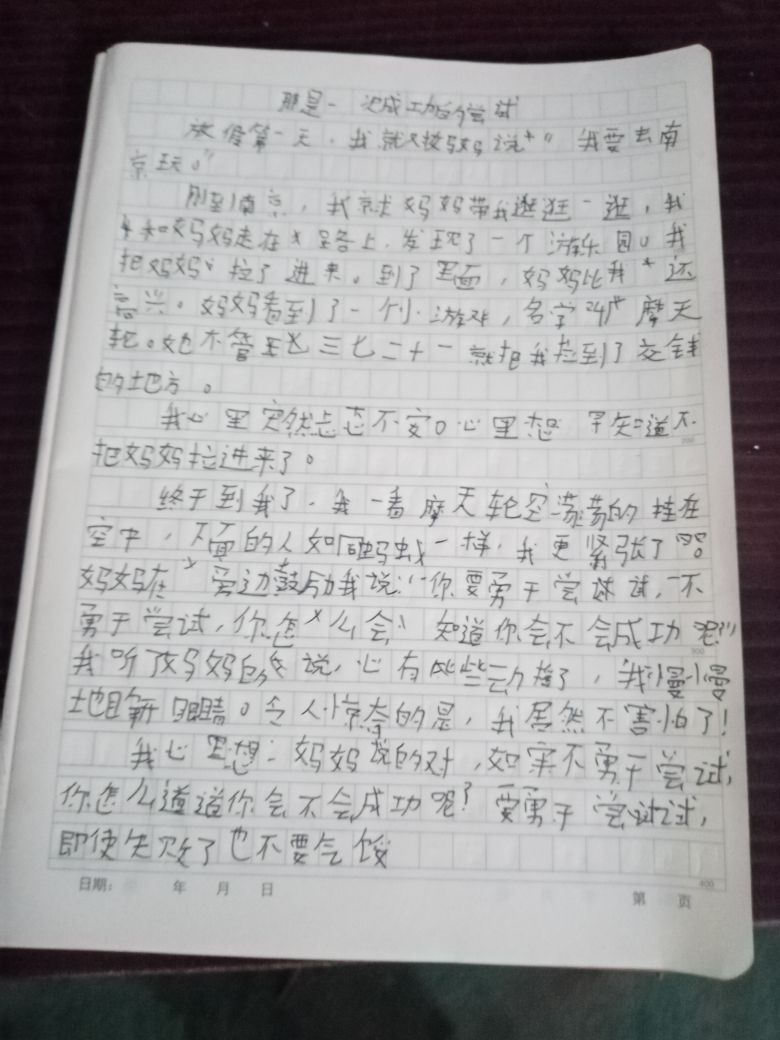 那是一次成功的尝试
放假第一天,我就又被妈妈说"我要去南
京玩。"
刚到南京,我就妈妈带我逛逛一逛,我
和妈妈走在路上,发现了一个游乐园。我
把妈妈拉了进来。到了里面,妈妈比我还
高兴。妈妈看到了一个小游戏,名字叫摩天
轮。她不管三七二十一就把我拉到了交钱
的地方。
我心里突然忐忑不安。心里想 早知道不
200
把妈妈拉进来了。
终于到我了,我一看摩天轮空荡荡的挂在
空中,下面的人如同蚂蚁一样,我更紧张了
妈妈在旁边鼓励我说:"你要勇于尝试试,不
勇于尝试,你怎么会知道你会不会成功呢?"
300
我听了妈妈的说,心有些动摇了,我慢慢
地睁开眼睛。令人惊奇的是,我居然不害怕了!
我心里想:妈妈说的对,如果不勇于尝试,
你怎么道道你会不会成功呢?要勇于尝试试,
即使失败了也不要气馁
400
日期: 年 月 日 第 页